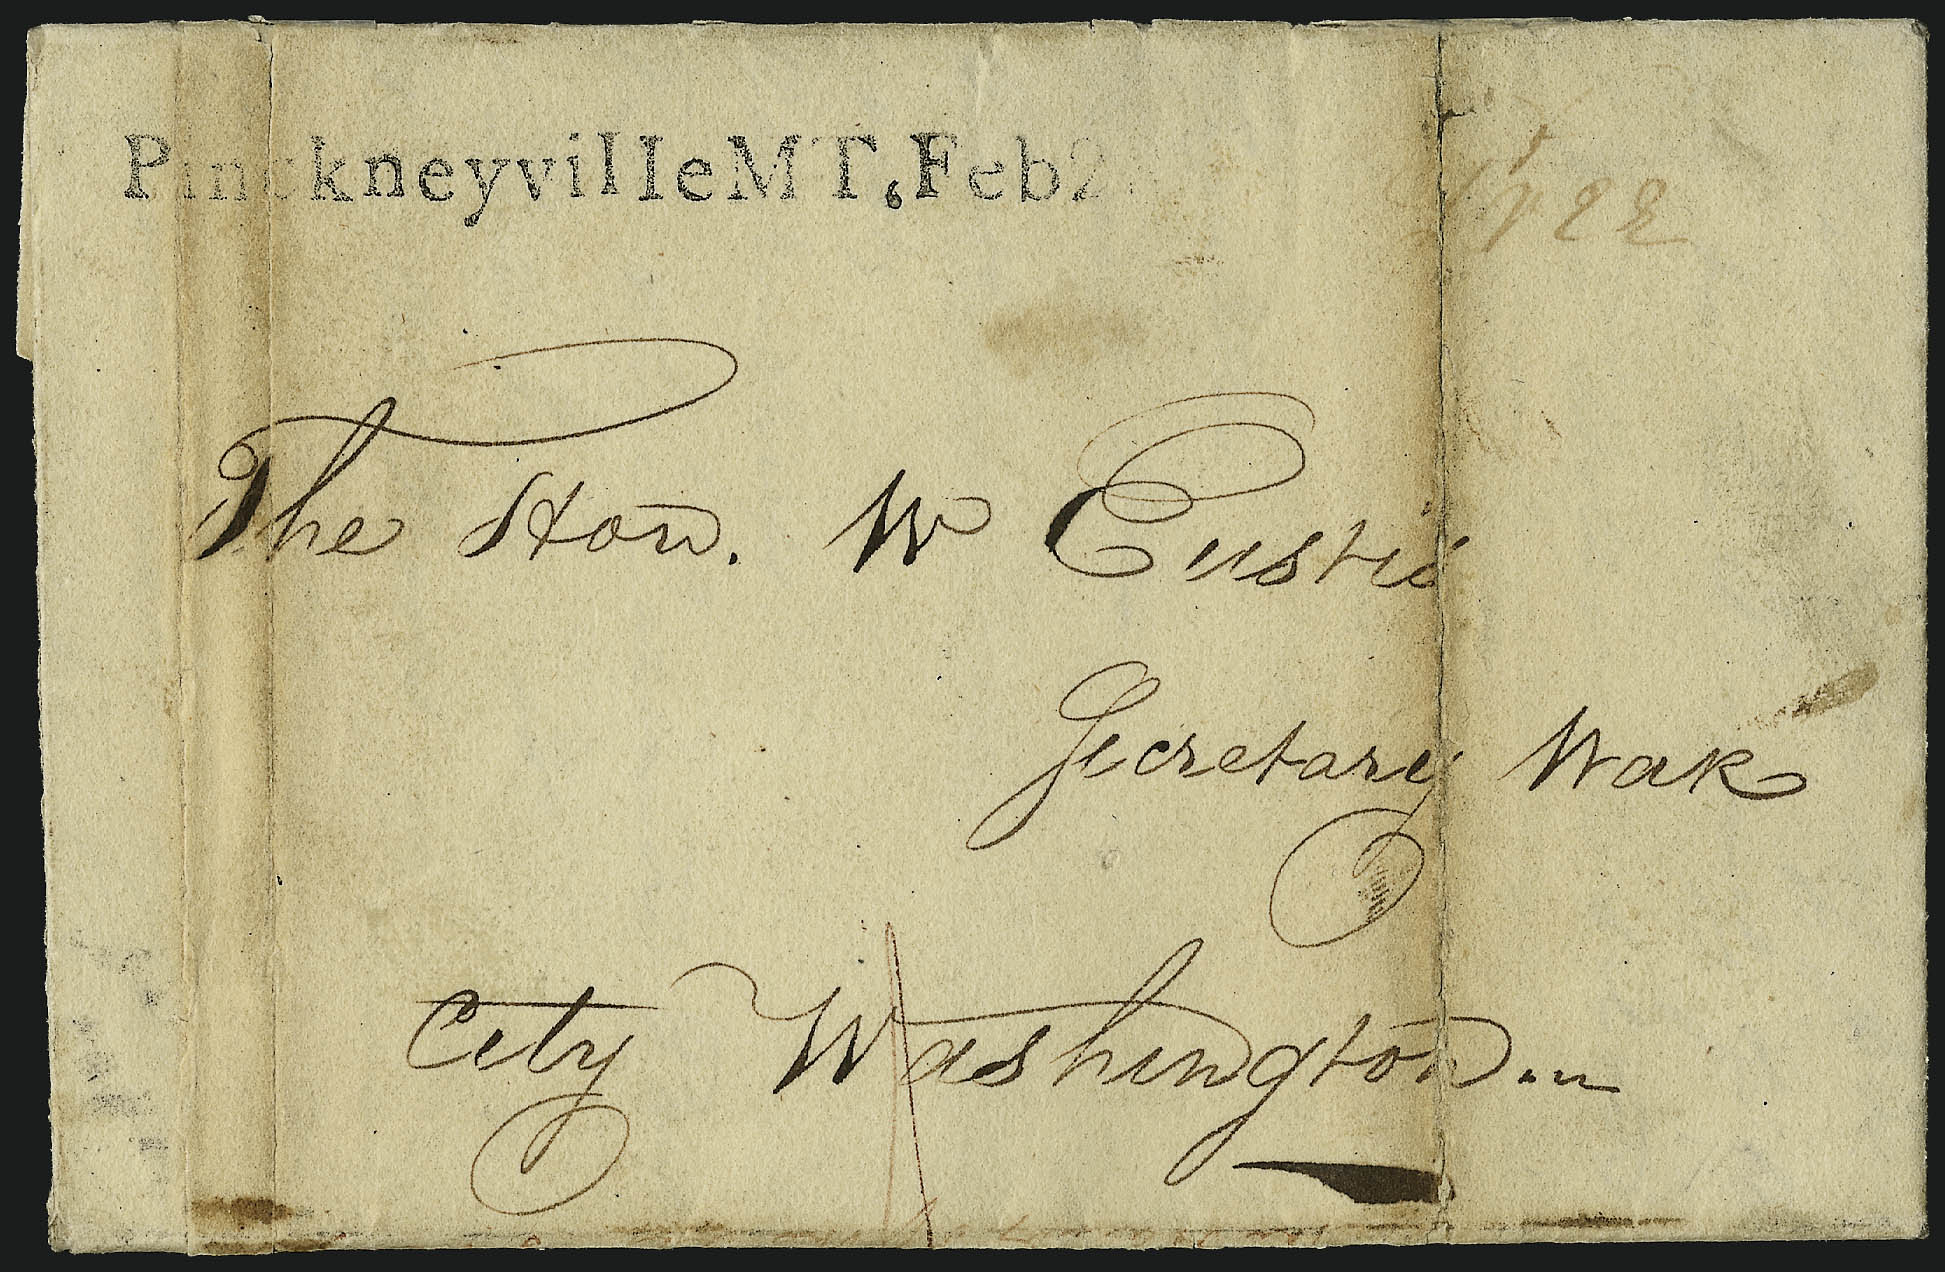 PinckneyvilleMT,Feb2
The Hon. W Eustis
Secretary War
City Washington